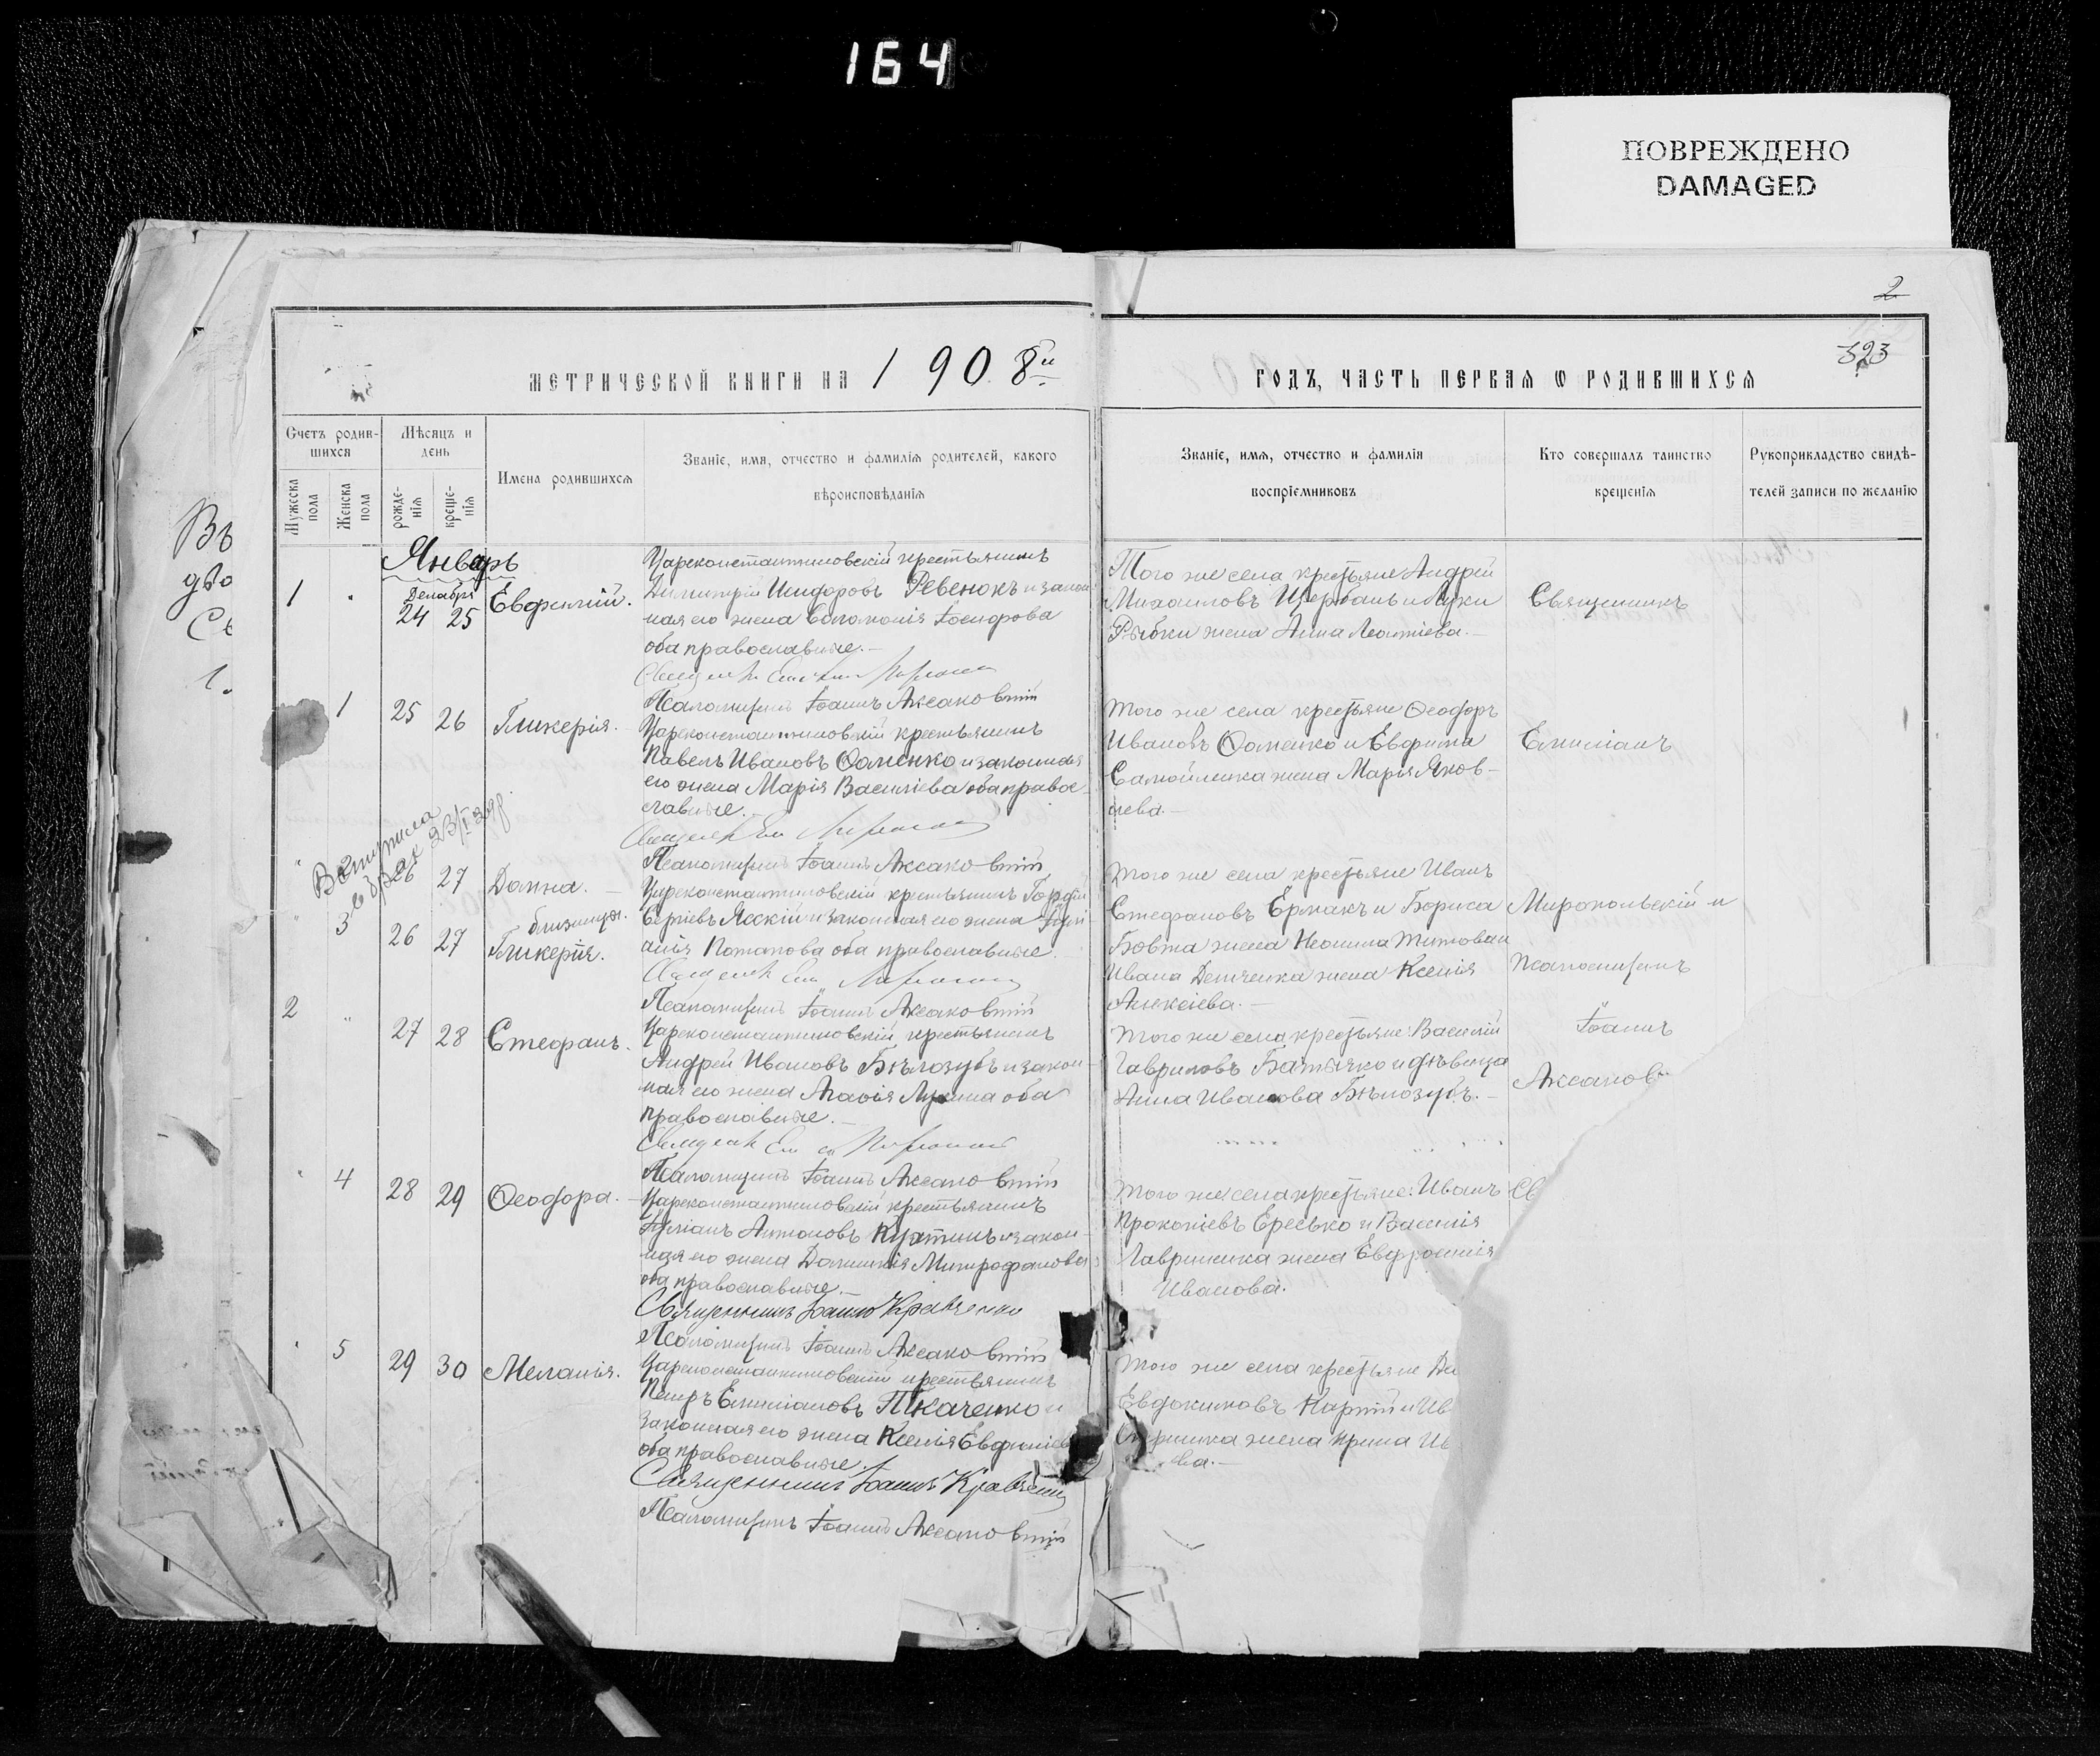 164
ПОВРЕЖДЕНО
DAMAGED
2
323
МЕТРИЧЕСКОЙ КНИГИ НА 1908й
ГОДЪ, ЧАСТЬ ПЕРВАЯ Ѡ РОДИВШИХСЯ
Счетъ родив-
шихся
Мужеска
пола
Женска
пола
Мѣсяцъ и
день
рожде-
нія
креще-
нія
Имена родившихся
Званіе, имя, отчество и фамилія родителей, какого
вѣроисповѣданія
Званіе, имя, отчество и фамилія
воспріемниковъ
Кто совершалъ таинство
крещенія
Рукоприкладство свидѣ-
телей записи по желанію
Въ
дѣо
Св
1.
Январь
Декабря
1
24 25
Евфимій.
Цареконстантиновскій крестьянинъ
Димитрій Исидоровъ Ревенокъ и закон-
ная его жена Соломонія Іосифова
оба православные.
Псаломщикъ Іоаннъ Аксаковскій
Того же села крестьяне Андрей
Михаиловъ Щербань и Луки
Рыбки жена Анна Леонтіева.
Священникъ
1
25 26
Гликерія.
Цареконстантиновскій крестьянинъ
Павелъ Ивановъ Ѳоменко и законная
его жена Марія Василіева оба право-
славные.
Псаломщикъ Іоаннъ Аксаковскій
того же села крестьяне Ѳеодоръ
Ивановъ Ѳоменко и Евфима
Самойленка жена Марія Яков-
лева.
Емиліанъ
Вступила
в брак 23/I 29г.
2
26 27
Домна.
близнецы.
3
26 27
Гликерія.
Цареконстантиновскій крестьянинъ Гордій
Сергіевъ Яскій и законная его жена Іулі-
анія Потапова оба православные.
Псаломщикъ Іоаннъ Аксаковскій
того же села крестьяне Иванъ
Стефановъ Ермакъ и Бориса
Бовта жена Неонила Титова и
Ивана Демченка жена Ксенія
Алексіева.
Миропольскій и
псаломщикъ
2
27 28
Стефанъ.
Цареконстантиновскій крестьянинъ
Андрей Ивановъ Бѣлозубъ и закон-
ная его жена Агафія Лукина оба
православные.
Псаломщикъ Іоаннъ Аксаковскій
того же села крестьяне: Василій
Гавриловъ Батечко и дѣвица
Анна Иванова Бѣлозубъ.
Іоаннъ
Аксаков
4
28 29
Ѳеодора.
Цареконстантиновскій крестьянинъ
Іуліанъ Антоновъ Кухтинъ и закон-
ная его жена Домникія Митрофанова
оба православные.
Священникъ Іоаннъ Кравченко
Псаломщикъ Іоаннъ Аксаковскій
того же села крестьяне: Иванъ
Прокопіевъ Ересько и Василія
Гавриленка жена Евфросинія
Иванова.
Св
5
29 30
Меланія.
Цареконстантиновскій крестьянинъ
Петръ Емиліановъ Ткаченко и
законная его жена Ксенія Евфиміева
оба православные.
Священникъ Іоаннъ Кравченко
Псаломщикъ Іоаннъ Аксаковскій
того же села крестьяне
Евдокимовъ и Ив
жена Ирина Ив
ева.